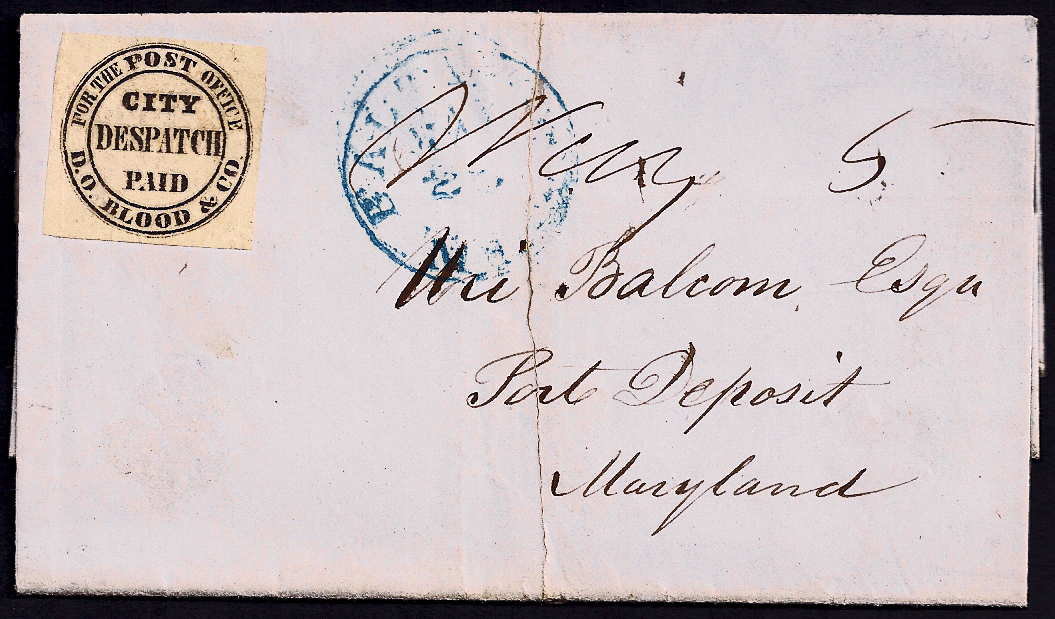 FOR THE POST OFFICE
CITY
DESPATCH
PAID
D.O. BLOOD & CO.
BALT
MD
5
Balcom Esqu
Port Deposit
Maryland